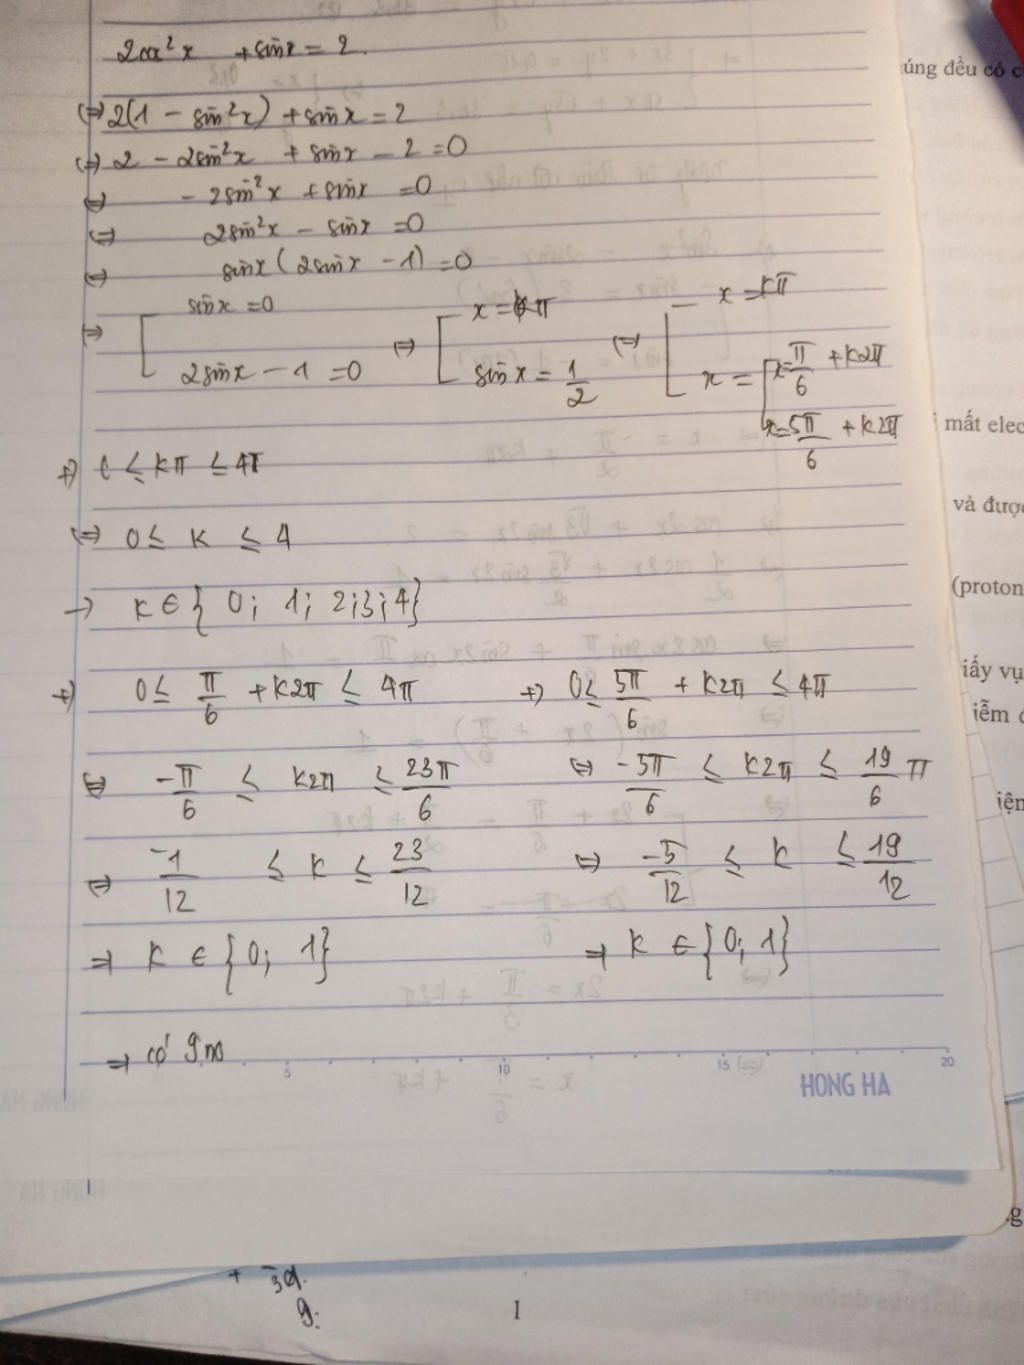 2cos²x + sinx = 2.
⇔ 2(1 - sin²x) + sinx = 2
⇔ 2 - 2sin²x + sinx - 2 = 0
⇔ - 2sin²x + sinx = 0
⇔ 2sin²x - sinx = 0
⇔ sinx(2sinx - 1) = 0
⇔ [ sinx = 0 ⇔ [ x = kπ ⇔ [ x = kπ
2sinx - 1 = 0 sinx = 1/2 x = [ x = π/6 + k2π
x = 5π/6 + k2π
+) 0 ≤ kπ ≤ 4π
⇔ 0 ≤ k ≤ 4
→ k ∈ { 0; 1; 2; 3; 4}
+) 0 ≤ π/6 + k2π ≤ 4π +) 0 ≤ 5π/6 + k2π ≤ 4π
⇔ -π/6 ≤ k2π ≤ 23π/6 ⇔ -5π/6 ≤ k2π ≤ 19/6 π
⇔ -1/12 ≤ k ≤ 23/12 ⇔ -5/12 ≤ k ≤ 19/12
⇒ k ∈ {0; 1} ⇒ k ∈ {0; 1}
⇒ có 9 no
5 10 15 20
HONG HA
úng đều có c
mất elec
và được
(proton
iấy vụ
iễm
iện
g
1